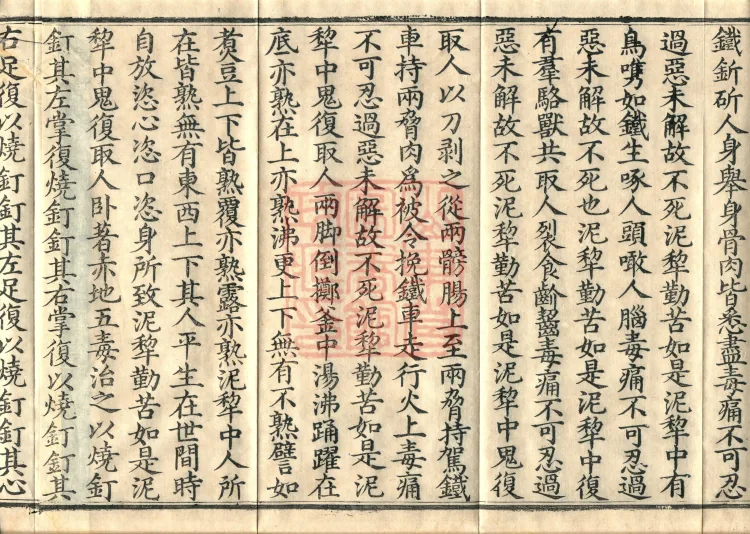 鐵釿斫人身舉身骨肉皆悉盡毒痛不可忍
過惡未解故不死泥犂勤苦如是泥犂中有
鳥喙如鐵生啄人頭噉人腦毒痛不可忍過
惡未解故不死也泥犂勤苦如是泥犂中復
有羣駱獸共取人裂食齡齧毒痛不可忍過
惡未解故不死泥犂勤苦如是泥犂中鬼復
取人以刀剥之從兩髈腸上至兩脅持駕鐵
車持兩脅肉為被令挽鐵車走行火上毒痛
不可忍過惡未解故不死泥犂勤苦如是泥
犂中鬼復取人兩脚倒擲釜中湯沸踊躍在
底亦熟在上亦熟沸更上下無有不熟譬如
煑豆上下皆熟覆亦熟露亦熟泥犂中人所
在皆熟無有東西上下其人平生在世間時
自放恣心恣口恣身所致泥犂勤苦如是泥
犂中鬼復取人卧著赤地五毒治之以燒釘
釘其左掌復燒釘釘其右掌復以燒釘釘其
右足復以燒釘釘其左足復以燒釘釘其心